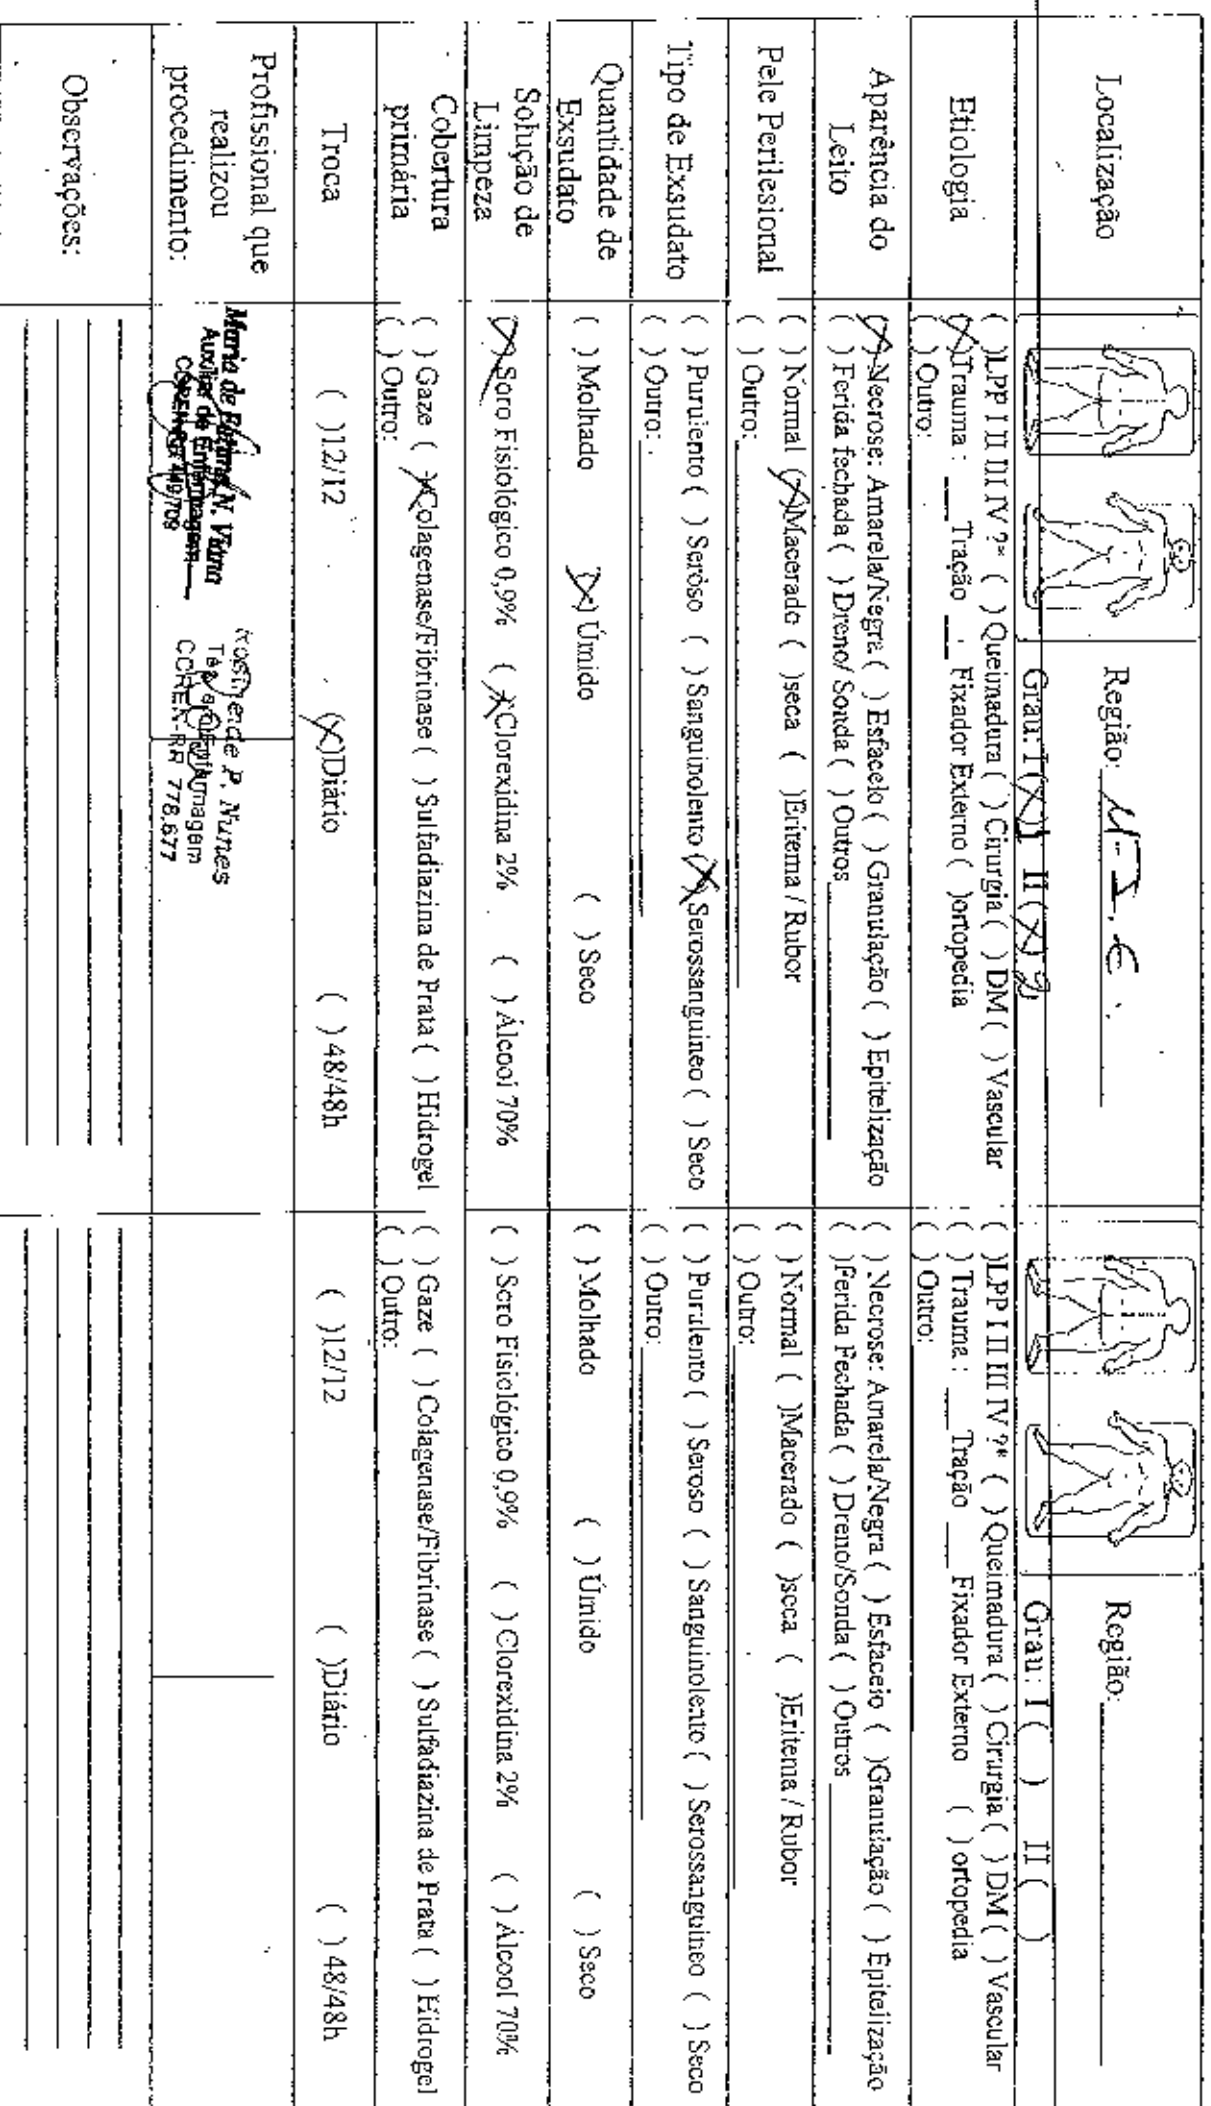 Localização
Região: M.I.E.
Grau: I (X) 1 II (X) 2
Região:
Grau: I ( ) II ( )
Etiologia
( )LPP I II III IV ?* ( ) Queimadura ( ) Cirurgia ( ) DM ( ) Vascular
(X)Trauma : ___ Tração ___ Fixador Externo ( )ortopedia
( ) Outro:
( )LPP I II III IV ?* ( ) Queimadura ( ) Cirurgia ( ) DM ( ) Vascular
( ) Trauma : ___ Tração ___ Fixador Externo ( ) ortopedia
( ) Outro:
Aparência do
Leito
(X) Necrose: Amarela/Negra ( ) Esfacelo ( ) Granulação ( ) Epitelização
( ) Ferida fechada ( ) Dreno/ Sonda ( ) Outros
( ) Necrose: Amarela/Negra ( ) Esfacelo ( )Granulação ( ) Epitelização
( )Ferida Fechada ( ) Dreno/Sonda ( ) Outros
Pele Perilesional
( ) Normal (X)Macerado ( )seca ( )Eritema / Rubor
( ) Outro:
( ) Normal ( )Macerado ( )seca ( )Eritema / Rubor
( ) Outro:
Tipo de Exsudato
( ) Purulento ( ) Seroso ( ) Sanguinolento (X) Serossanguineo ( ) Seco
( ) Outro:
( ) Purulento ( ) Seroso ( ) Sanguinolento ( ) Serossanguineo ( ) Seco
( ) Outro:
Quantidade de
Exsudato
( ) Molhado (X) Úmido ( ) Seco
( ) Molhado ( ) Úmido ( ) Seco
Solução de
Limpeza
(X) Soro Fisiológico 0,9% (X)Clorexidina 2% ( ) Álcool 70%
( ) Soro Fisiológico 0,9% ( ) Clorexidina 2% ( ) Álcool 70%
Cobertura
primária
( ) Gaze (X)Colagenase/Fibrinase ( ) Sulfadiazina de Prata ( ) Hidrogel
( ) Outro:
( ) Gaze ( ) Colagenase/Fibrinase ( ) Sulfadiazina de Prata ( ) Hidrogel
( ) Outro:
Troca
( )12/12 (X)Diário ( ) 48/48h
( )12/12 ( )Diário ( ) 48/48h
Profissional que
realizou
procedimento:
Maria de Fátima N. Viana
Auxiliar de Enfermagem
COREN-RR 449.709
P. Nunes
Enfermagem
COREN-RR 778.677
Observações: